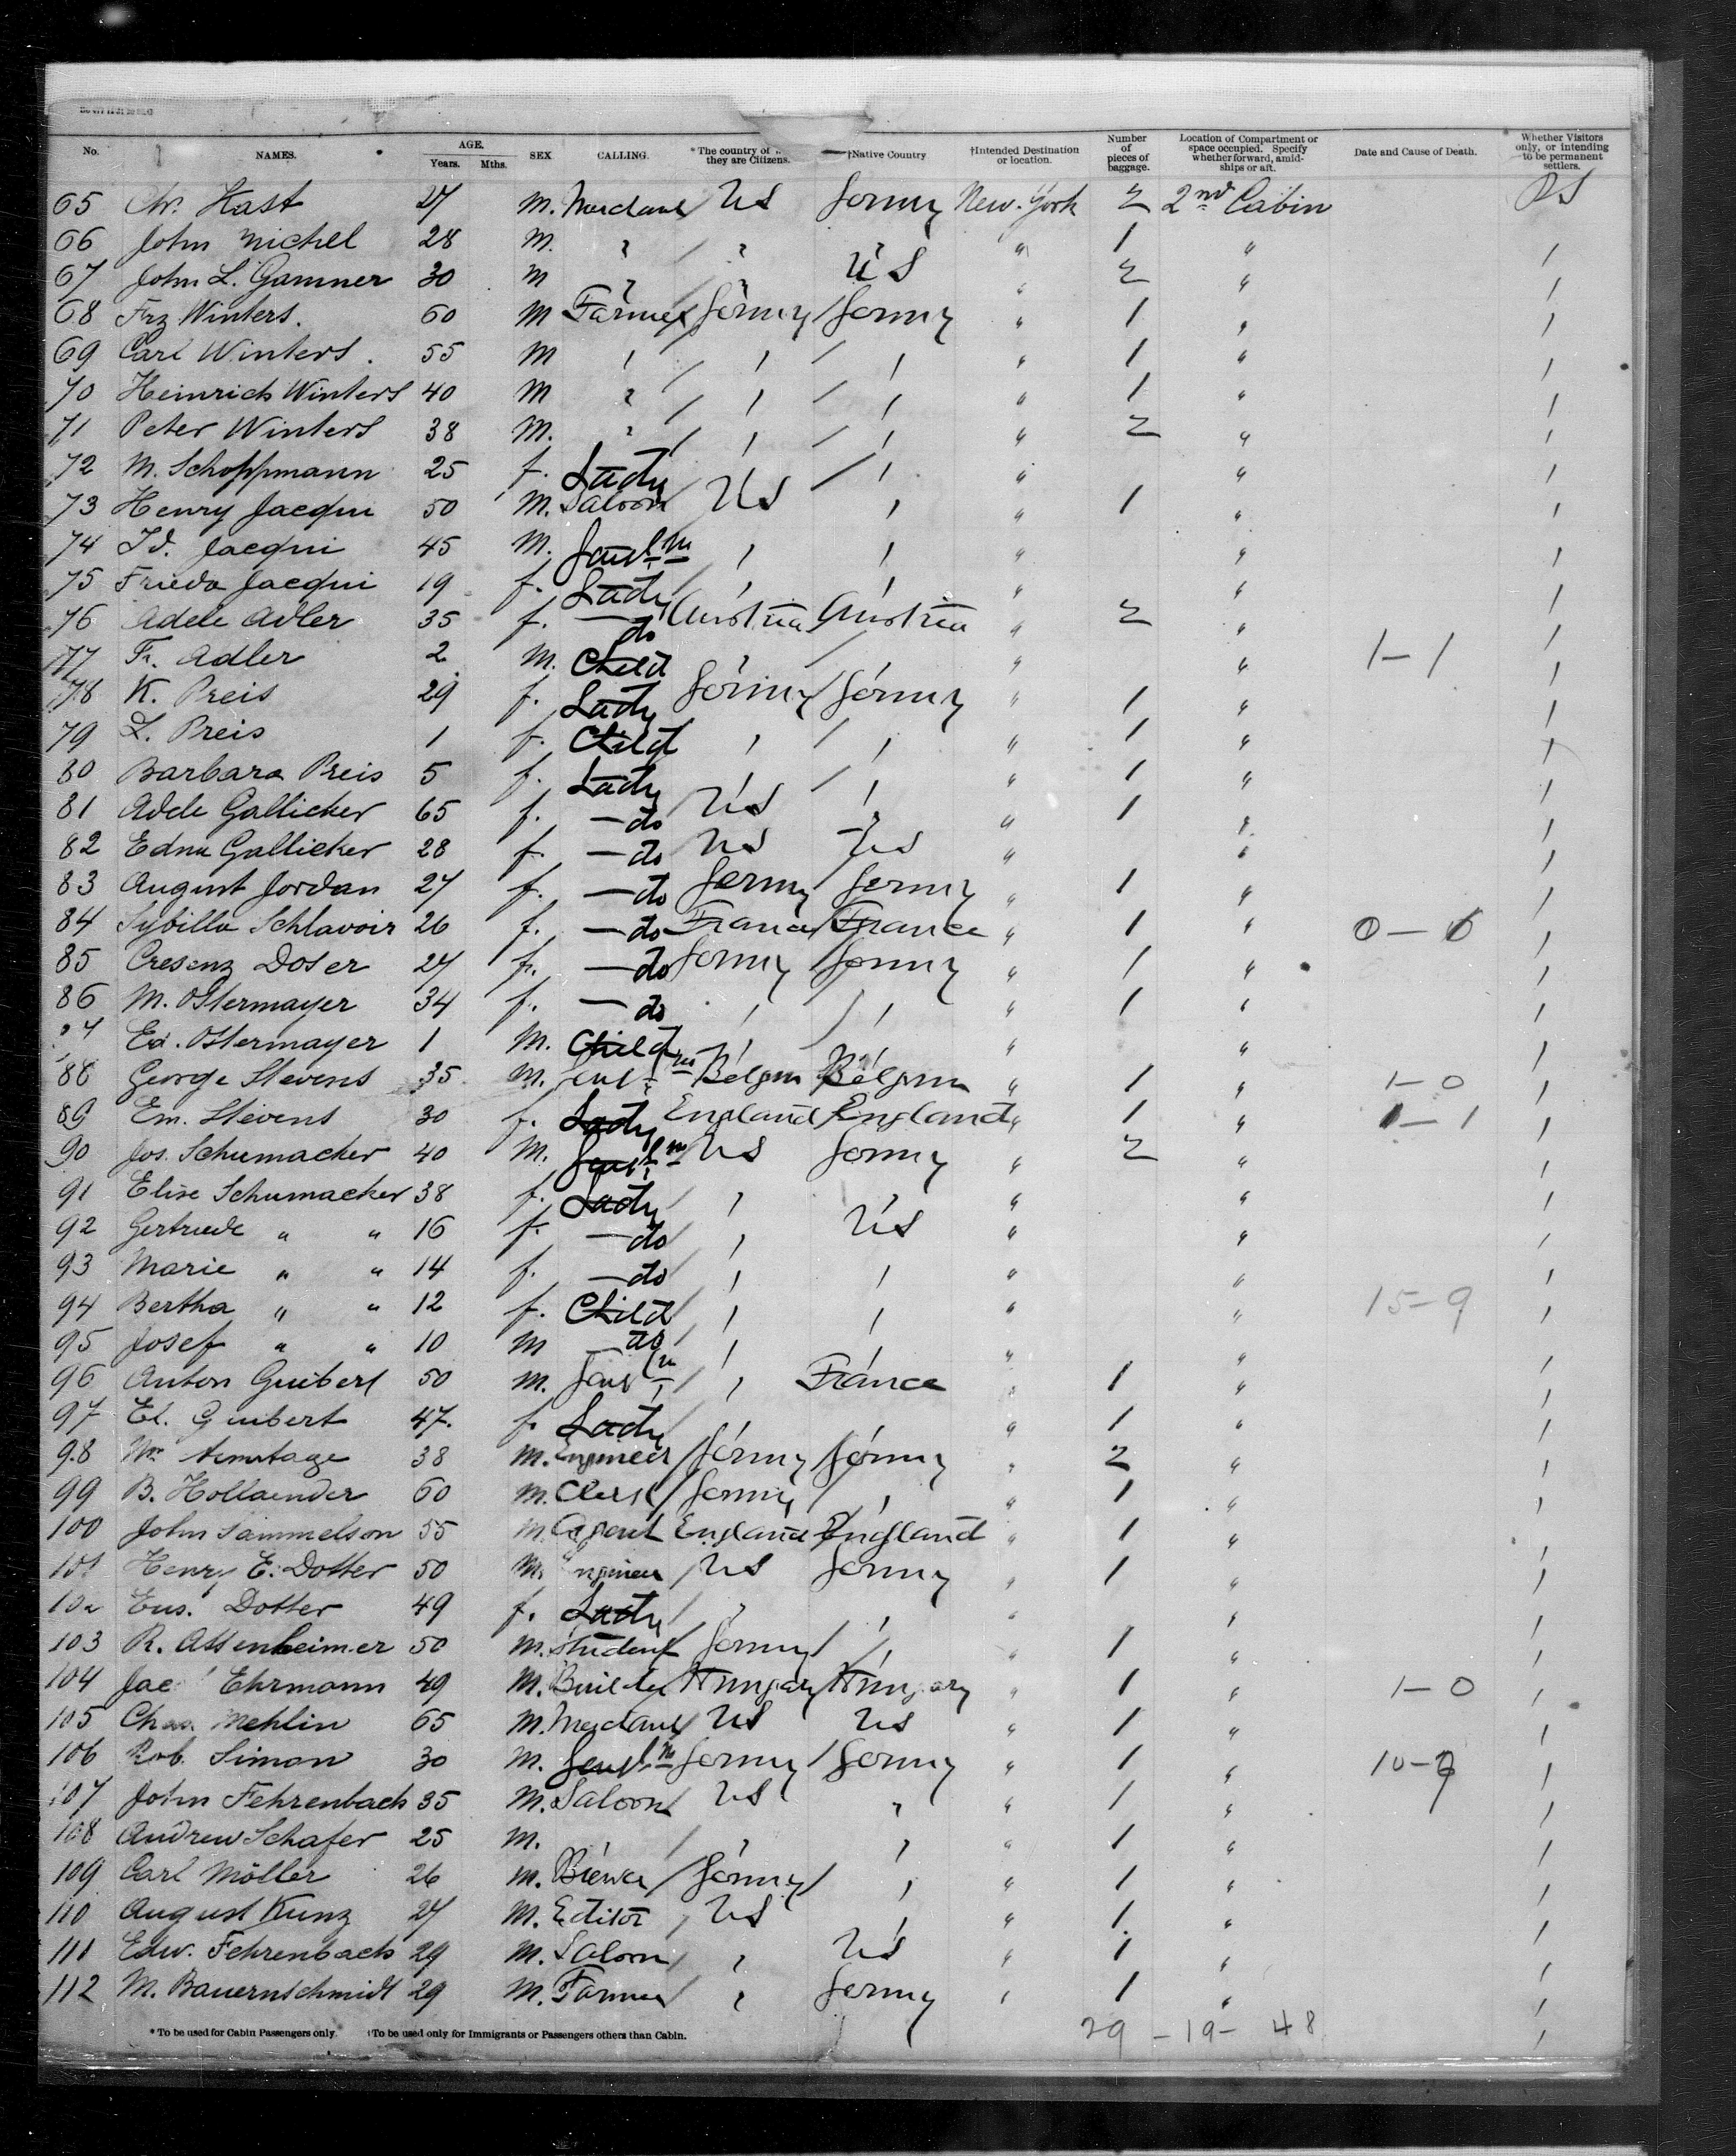 No. NAMES. AGE. Years. Mths. SEX CALLING. *The country of they are Citizens. †Native Country †Intended Destination or location. Number of pieces of baggage. Location of Compartment or space occupied. Specify whether forward, amidships or aft. Date and Cause of Death. Whether Visitors only, or intending to be permanent settlers.
65 Chr. Hast 27 M. US Germy New York 2 2nd Cabin
66 John Michel 28 M. " " " 1 "
67 John L. Gamner 30 M " " US " 2 "
68 Frz Winters. 60 M Farmer Germy Germy " 1 "
69 Carl Winters. 55 M " " " " 1 "
70 Heinrich Winters 40 M " " " " 1 "
71 Peter Winters 38 M. " " " " 2 "
72 M. Schoppmann 25 f. Lady " " "
73 Henry Jacqui 50 M. Saloon US " " 1 "
74 Jd. Jacqui 45 M. Gentlm " " " "
75 Frieda Jacqui 19 f. Lady " " " "
76 Adele Adler 35 f. —do Austria Austria " 2 "
77 Fr. Adler 2 M. Child " " " " 1—1
78 K. Preis 29 f. Lady Germy Germy " 1 "
79 L. Preis 1 f. Child " " " 1 "
80 Barbara Preis 5 f. Lady " " 1 "
81 Adele Gallicker 65 f. —do US " " 1 "
82 Edna Gallicker 28 f. —do US US " "
83 August Jordan 27 f. —do Germy Germy " 1 "
84 Sybilla Schlavoir 26 f. —do France France " 1 "
85 Cresenz Doser 27 f. —do Germy Germy " 1 "
86 M. Ostermayer 34 f. —do " " " 1 "
87 Ed. Ostermayer 1 M. Child " " "
88 George Stevens 35 M. Gentlm Belgm Belgm " 1 " 1—0
89 Em. Stevens 30 f. Lady England England " 1 " 1—1
90 Jos. Schumacker 40 M. Gentlm US Germy " 2 "
91 Elise Schumacker 38 f. Lady " " "
92 Gertrude " " 16 f. —do " US " "
93 Marie " " 14 f. —do " " " "
94 Bertha " " 12 f. Child " " " " 15—9
95 Josef " " 10 M do " " " "
96 Anton Guibert 50 M. Gentlm " France " 1 "
97 El. Guibert 47. f. Lady " " " 1 "
98 Wm Armitage 38 M. Engineer Germy Germy " 2 "
99 B. Hollaender 60 M. Clerk Germy " " 1 "
100 John Sammelson 55 M. Agent England England " 1 "
101 Henry E. Dotter 50 M. Engineer US Germy " 1 "
102 Eus. Dotter 49 f. Lady " " " "
103 R. Assenheimer 50 M. Student Germy " " 1 "
104 Jac Ehrmann 49 M. Builder Hungary Hungary " 1 " 1—0
105 Chas. Mehlin 65 M. US US " 1 "
106 Rob. Simon 30 M. Gentlm Germy Germy " 1 "
107 John Fehrenbach 35 M. Saloon US " " 1 "
108 Andrew Schafer 25 M. " " " " 1 "
109 Carl Möller 26 M. Brewer Germy " " 1 "
110 August Kunz 27 M. Editor US " " 1 "
111 Edw. Fehrenbach 29 M. Saloon " US " 1 "
112 M. Bauernschmidt 29 M. Farmer " Germy " 1 "
29 — 19 — 48
*To be used for Cabin Passengers only. †To be used only for Immigrants or Passengers others than Cabin.